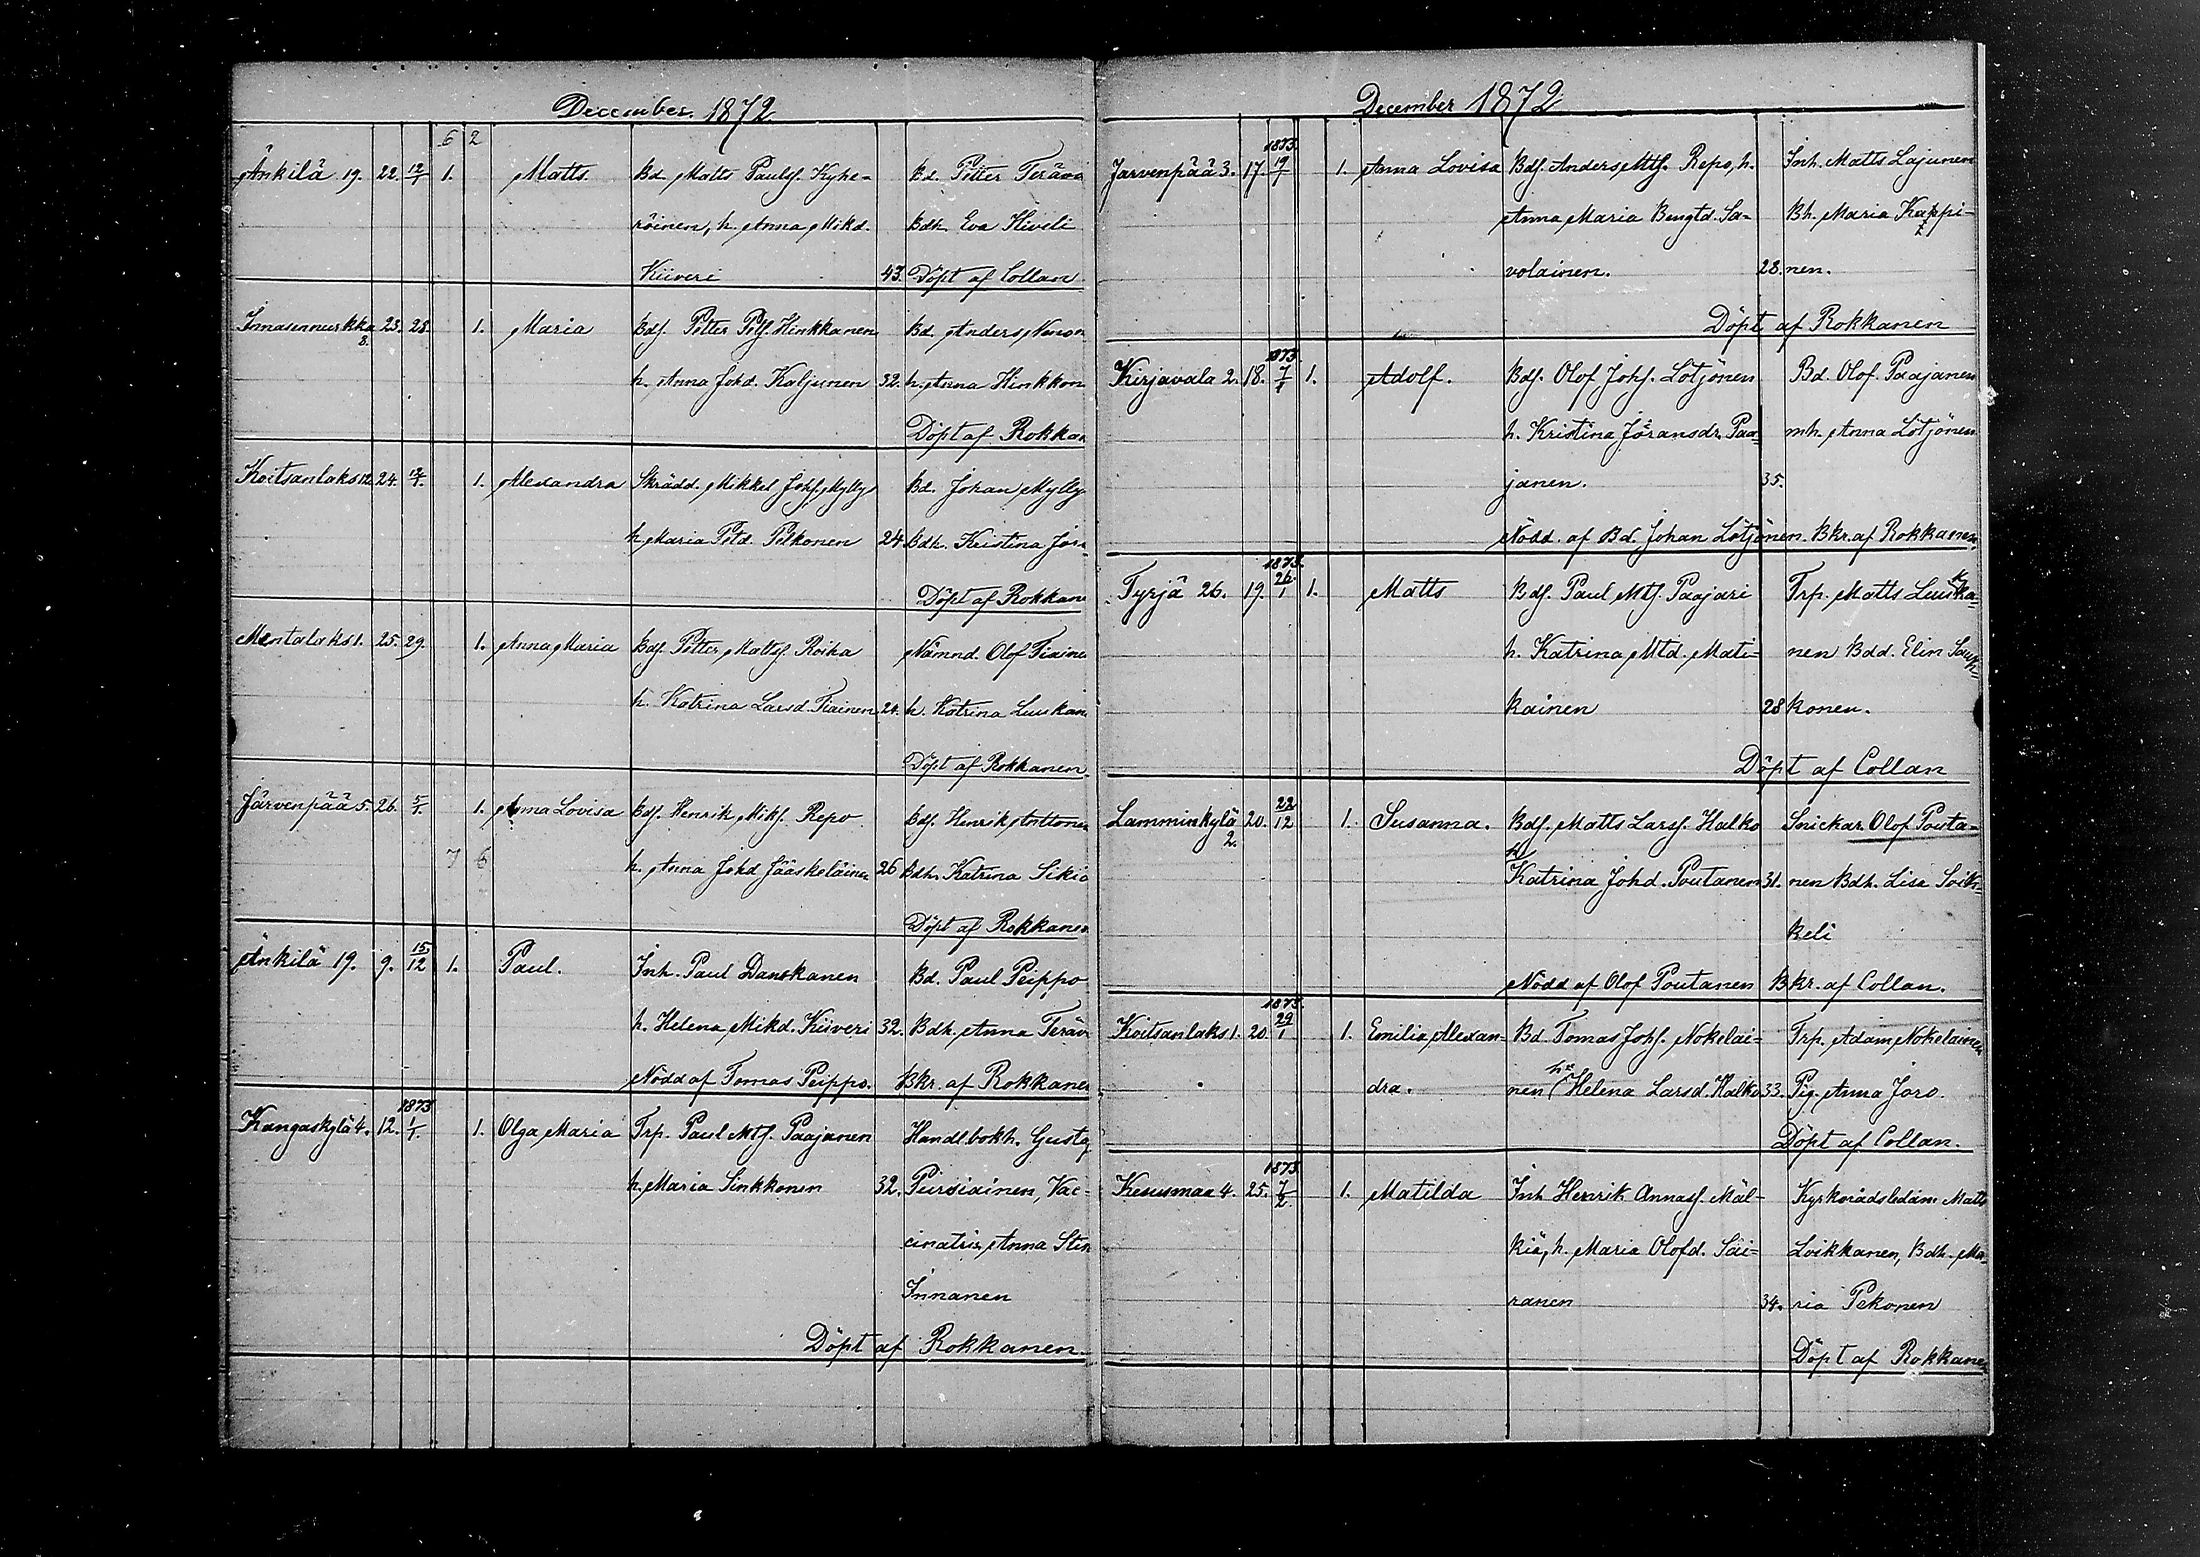 December. 1872
6 2
Änkilä 19. 22. 12/1 1. Matts. Bd. Matts Paulsf. Kyhe- Bd. Petter Teräva
röinen, h. Anna Mikd. Bdh. Eva Kiveli
Kiiveri 43. Döpt af Collan
Innasennurkka 8. 23. 28. 1. Maria Bdf. Petter Petf. Hinkkanen Bd. Anders
h. Anna Johd. Kaljunen 32. h. Anna Hinkkon
Döpt af Rokkan
Koitsanlaks 12. 24. 1. Alexandra Skrädd. Mikkel Johf. Myllys Bd. Johan Mylly
h. Maria Petd. Pelkonen 24 Bdh. Kristina Joro
Döpt af Rokkan
Mentalaks 1. 25. 29. 1. Anna Maria Bdf. Petter Mattsf. Roika Nämnd. Olof Tiaine
h. Katrina Larsd. Tiainen 24. h. Katrina Luukan
Döpt af Rokkanen
Järvenpää 5. 26. 5/1. 1. Anna Lovisa Bdf. Henrik Mikf. Repo Bdf. Henrik Anttonen
7 6 h. Anna Johd Jääskeläinen 26 Bdh. Katrina Sikiö
Döpt af Rokkanen
Änkilä 19. 9. 15/12 1. Paul. Inh. Paul Danskanen Bd. Paul Peippo
h. Helena Mikd. Kiiveri 32. Bdh. Anna Teräv
Nödd af Tomas Peippo. Bkr. af Rokkanen
1873
Kangaskylä 4. 12. 1/1. 1. Olga Maria Trp. Paul Mtf. Paajanen Handl.bokh. Gustaf
h. Maria Sinkkonen 32. Pursiainen, Vac-
cinatris Anna Stin
Innanen
Döpt af Rokkanen.
December 1872
1873.
Järvenpää 3. 17. 19/1 1. Anna Lovisa Bdf. Anders Mtf. Repo, h. Inh. Matts Lajunen
Anna Maria Bengtd. Sa- Bh. Maria Kappi-
volainen. 28. nen.
Döpt af Rokkanen
1873.
Kirjavala 2. 18. 7/1 1. Adolf. Bdf. Olof Johf. Lötjönen Bd. Olof Paajanen
h. Kristina Jöransdr. Paa- mh. Anna Lötjönen
janen. 35.
Nödd. af Bd. Johan Lötjönen. Bkr. af Rokkanen.
1873.
Tyrjä 26. 19. 26/1 1. Matts Bdf. Paul Mtf. Paajari Trp. Matts Luukka-
h. Katrina Mtd. Mati- nen Bdd. Elin Sauk-
kainen 28 konen.
Döpt af Collan
Lamminkylä 2. 20. 22/12 1. Susanna. Bdf. Matts Larsf. Halko Snickar Olof Pouta-
h Katrina Johd. Poutanen 31. nen Bdh. Lisa Soik-
keli
Nödd af Olof Poutanen Bkr. af Collan.
1873.
Koitsanlaks 1. 20. 29/1 1. Emilia Alexan- Bd. Tomas Johf. Nokelai- Trp. Adam Nokelainen
dra. nen h. Helena Larsd. Halko 33. Pig. Anna Joro.
Döpt af Collan.
1873
Kesusmaa 4. 25. 7/2. 1. Matilda Inh Henrik Annasf. Mäl- Kyrkorådsledam Matts
kiä, h. Maria Olofd. Sai- Loikkanen, Bdh. Ma-
ranen 34. ria Pekonen
Döpt af Rokkanen